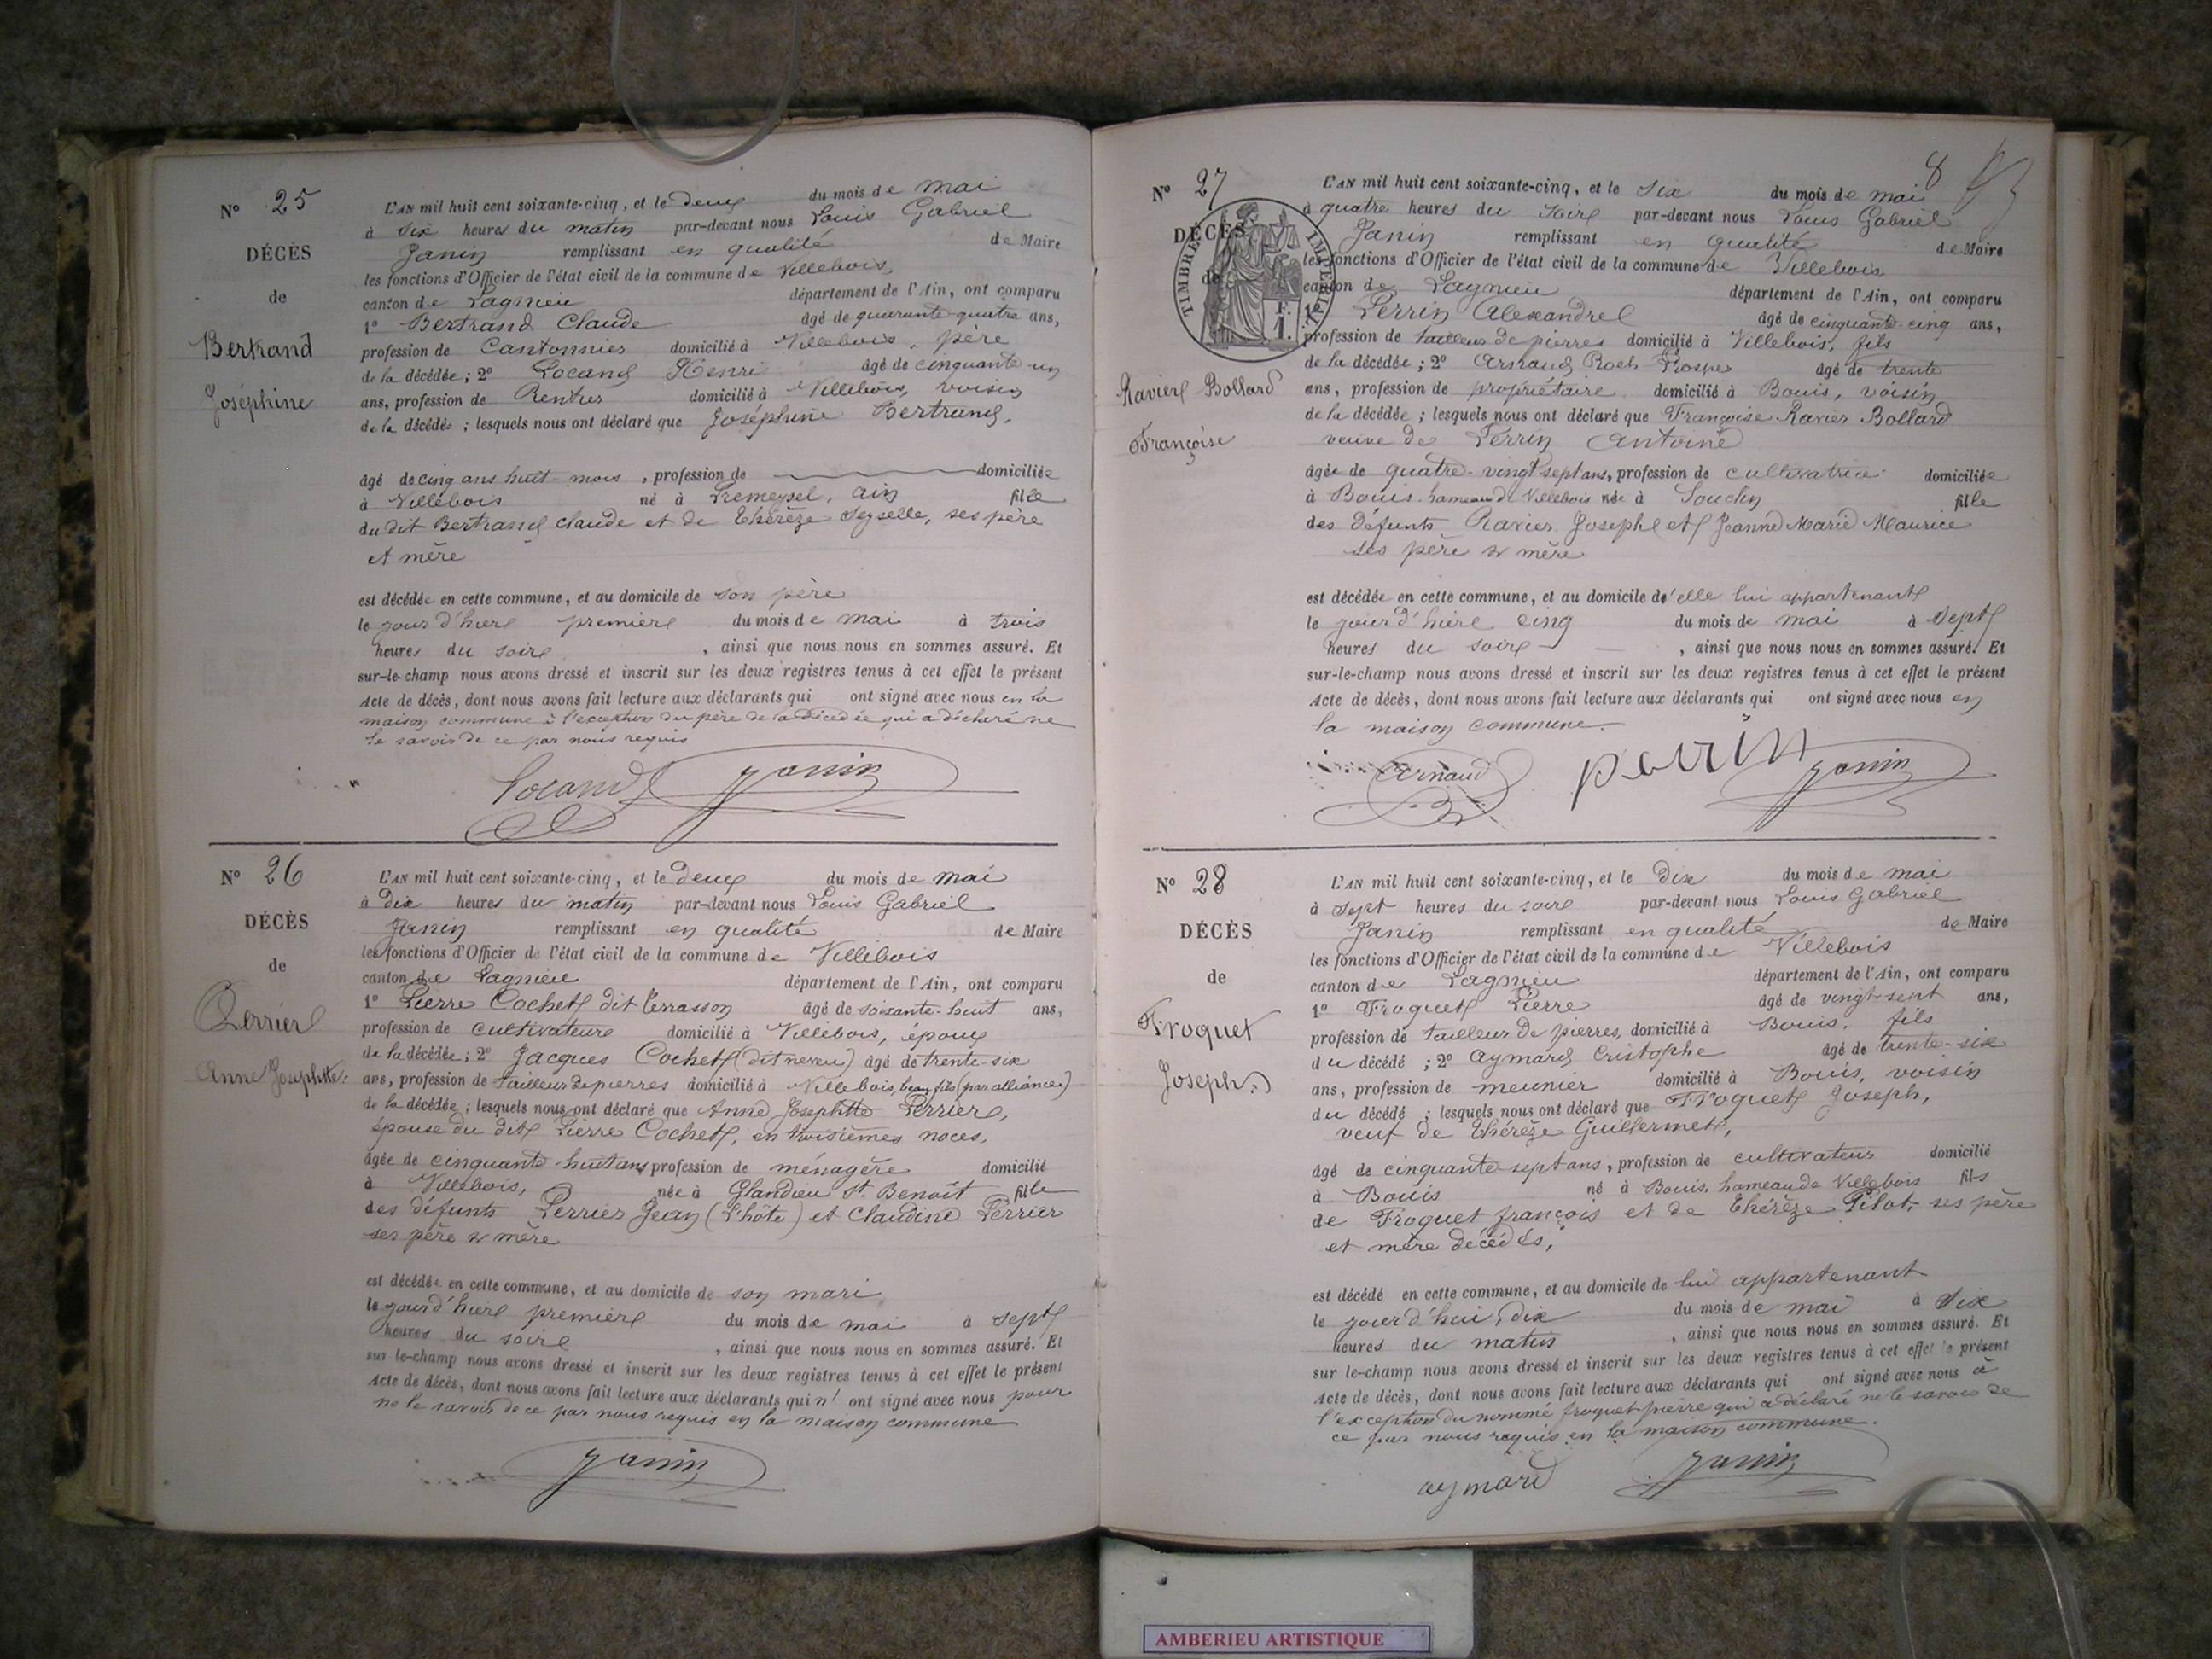 N° 25
DÉCÈS
de
Bertrand
Joséphine
L'AN mil huit cent soixante-cinq, et le deux du mois de mai
à six heures du matin par-devant nous Louis Gabriel
Janin remplissant en qualité de Maire
les fonctions d'Officier de l'état civil de la commune de Villebois,
canton de Lagnieu département de l'Ain, ont comparu
1° Bertrand Claude âgé de quarante-quatre ans,
profession de Cantonnier domicilié à Villebois, père
de la décédée ; 2° Locand Henri âgé de cinquante-un
ans, profession de Rentier domicilié à Villebois, voisin
de la décédée ; lesquels nous ont déclaré que Joséphine Bertrand,
âgé de cinq ans huit mois, profession de domiciliée
à Villebois né à Premeyzel, Ain fille
du dit Bertrand Claude et de Thérèze Seyselle, ses père
et mère
est décédée en cette commune, et au domicile de son père
le jour d'hier premier du mois de mai à trois
heures du soir, ainsi que nous nous en sommes assuré. Et
sur-le-champ nous avons dressé et inscrit sur les deux registres tenus à cet effet le présent
Acte de décès, dont nous avons fait lecture aux déclarants qui ont signé avec nous en la
maison commune à l'exception du père de la décédée qui a déclaré ne
le savoir de ce par nous requis
Locand Janin
N° 26
DÉCÈS
de
Perrier
Anne Josephtte
L'AN mil huit cent soixante-cinq, et le deux du mois de mai
à Dix heures du matin par-devant nous Louis Gabriel
Janin remplissant en qualité de Maire
les fonctions d'Officier de l'état civil de la commune de Villebois
canton de Lagnieu département de l'Ain, ont comparu
1° Pierre Cochet dit Terrasson âgé de soixante-huit ans,
profession de cultivateur domicilié à Villebois, époux
de la décédée ; 2° Jacques Cochet (dit neveu) âgé de trente-six
ans, profession de tailleur de pierres domicilié à Villebois, beau fils (par alliance)
de la décédée ; lesquels nous ont déclaré que Anne Josephtte Perrier,
épouse du dit Pierre Cochet, en troisièmes noces,
âgée de cinquante-huit ans profession de ménagère domicilié
à Villebois, née à Glandieu St. Benoît fille
des défunts Perrier Jean (L'hôte) et Claudine Perrier
ses père & mère
est décédée en cette commune, et au domicile de son mari
le jour d'hier premier du mois de mai à sept
heures du soir, ainsi que nous nous en sommes assuré. Et
sur le-champ nous avons dressé et inscrit sur les deux registres tenus à cet effet le présent
Acte de décès, dont nous avons fait lecture aux déclarants qui n' ont signé avec nous pour
ne le savoir de ce par nous requis en la maison commune
Janin
8
N° 27
DÉCÈS
de
TIMBRE IMPERIAL
1. F.
Ravier Bollard
Françoise
L'AN mil huit cent soixante-cinq, et le six du mois de mai
à quatre heures du soir par-devant nous Louis Gabriel
Janin remplissant en qualité de Maire
les fonctions d'Officier de l'état civil de la commune de Villebois
canton de Lagnieu département de l'Ain, ont comparu
1° Perrin Alexandre âgé de cinquante-cinq ans,
profession de tailleur de pierres domicilié à Villebois, fils
de la décédée ; 2° Arnaud Roch Prosper âgé de trente
ans, profession de propriétaire domicilié à Bouis, voisin
de la décédée ; lesquels nous ont déclaré que Françoise Ravier Bollard
veuve de Perrin Antoine
âgée de quatre-vingt sept ans, profession de cultivatrice domiciliée
à Bouis hameau de Villebois née à Souclin fille
des défunts Ravier Joseph et Jeanne Marie Maurice
ses père & mère
est décédée en cette commune, et au domicile d'elle lui appartenant
le jour d'hier cinq du mois de mai à sept
heures du soir, ainsi que nous nous en sommes assuré. Et
sur-le-champ nous avons dressé et inscrit sur les deux registres tenus à cet effet le présent
Acte de décès, dont nous avons fait lecture aux déclarants qui ont signé avec nous en
la maison commune.
Arnaud perrin Janin
N° 28
DÉCÈS
de
Froquet
Joseph
L'AN mil huit cent soixante-cinq, et le dix du mois de mai
à sept heures du soir par-devant nous Louis Gabriel
Janin remplissant en qualité de Maire
les fonctions d'Officier de l'état civil de la commune de Villebois
canton de Lagnieu département de l'Ain, ont comparu
1° Froquet Pierre âgé de vingt-sept ans,
profession de tailleur de pierres, domicilié à Bouis, fils
du décédé ; 2° Aymard Cristophe âgé de trente-six
ans, profession de meunier domicilié à Bouis, voisin
du décédé ; lesquels nous ont déclaré que Froquet Joseph,
veuf de Thérèze Guillermet,
âgé de cinquante-sept ans, profession de cultivateur domicilié
à Bouis né à Bouis, hameau de Villebois fils
de Froquet françois et de Thérèze Pitot, ses père
et mère décédés,
est décédé en cette commune, et au domicile de lui appartenant
le jour d'hui, dix du mois de mai à six
heures du matin, ainsi que nous nous en sommes assuré. Et
sur le-champ nous avons dressé et inscrit sur les deux registres tenus à cet effet le présent
Acte de décès, dont nous avons fait lecture aux déclarants qui ont signé avec nous à
l'exception du nommé froquet pierre qui a déclaré ne le savoir de
ce par nous requis en la maison commune.
aymard Janin
AMBERIEU ARTISTIQUE